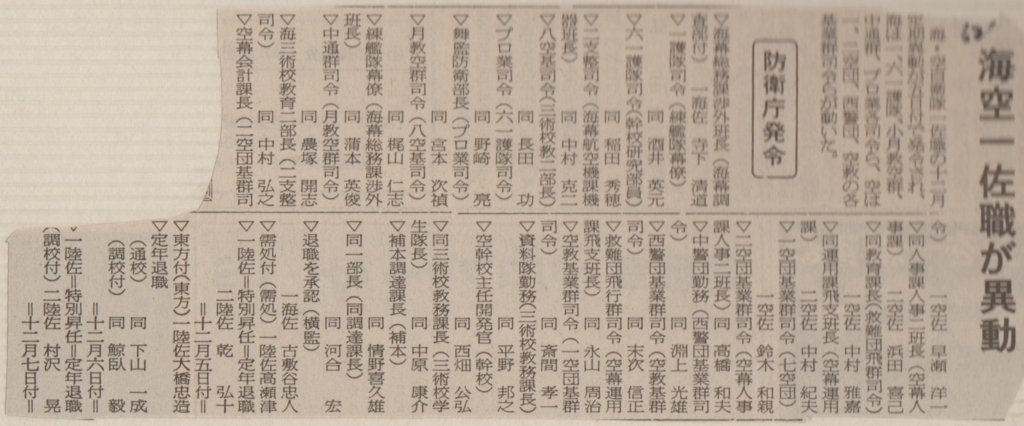 海空一佐職が異動
海・空自衛隊一佐職の十二月
定期異動が五日付で発令され、
海は一、六一護衛隊、小月教空群、
中通群、プロ業各司令ら、空は
一、二空団、西警団、空教の各
基業群司令らが動いた。
防衛庁発令
▽海幕総務課渉外班長（海幕調
査部付） 一海佐 寺下 清道
▽一護隊司令（練艦隊幕僚）
同 酒井 英元
▽六一護隊司令（幹校研究部員）
同 稲田 秀穂
▽二支整司令（海幕航空機課機
器班長） 同 中村 克二
▽八空基司令（三術校教二部長）
同 長田 功
▽プロ業司令（六一護隊司令）
同 野崎 亮
▽舞監防衛部長（プロ業司令）
同 宮本 次禎
▽月教空群司令（八空基司令）
同 梶山 仁志
▽練艦隊幕僚（海幕総務課渉外
班長） 同 蒲本 英俊
▽中通群司令（月教空群司令）
同 農塚 開志
▽海三術校教育二部長（二支整
司令） 同 中村 弘之
▽空幕会計課長（二空団基群司
令） 一空佐 早瀬 洋一
▽同人事課人事二班長（空幕人
事課） 二空佐 浜田 喜己
▽同教育課長（救難団飛群司令）
一空佐 中村 雅嘉
▽同運用課飛支班長（空幕運用
課） 二空佐 中村 紀夫
▽一空団基業群司令（七空団）
一空佐 鈴木 和親
▽二空団基業群司令（空幕人事
課人事二班長） 同 高橋 和夫
▽中警団勤務（西警団基業群司
令） 同 淵上 光雄
▽西警団基業群司令（空教基業群
司令） 同 末次 信正
▽救難団飛行群司令（空幕運用
課飛支班長） 同 永山 周治
▽空教基業群司令（一空団基群
司令） 同 斎間 孝一
▽資料隊勤務（三術校教務課長）
同 平野 邦之
▽空幹校主任開発官（幹校）
同 西畑 公弘
▽同三術校教務課長（三術校学
生隊長） 同 中原 康介
▽補本調達課長（補本）
同 情野喜久雄
▽同一部長（同調達課長）
同 河合 宏
▽退職を承認（横監）
一海佐 古敷谷忠人
▽需処付（需処）一陸佐高瀬津
▽一陸佐＝特別昇任＝定年退職
二陸佐 乾 弘十
＝十二月五日付＝
▽東方付（東方）一陸佐大橋忠造
▽定年退職
（通校） 同 下山 一成
（調校付） 同 鯨臥 毅
＝十二月六日付＝
▽一陸佐＝特別昇任＝定年退職
（調校付）二陸佐 村沢 晃
＝十二月七日付＝